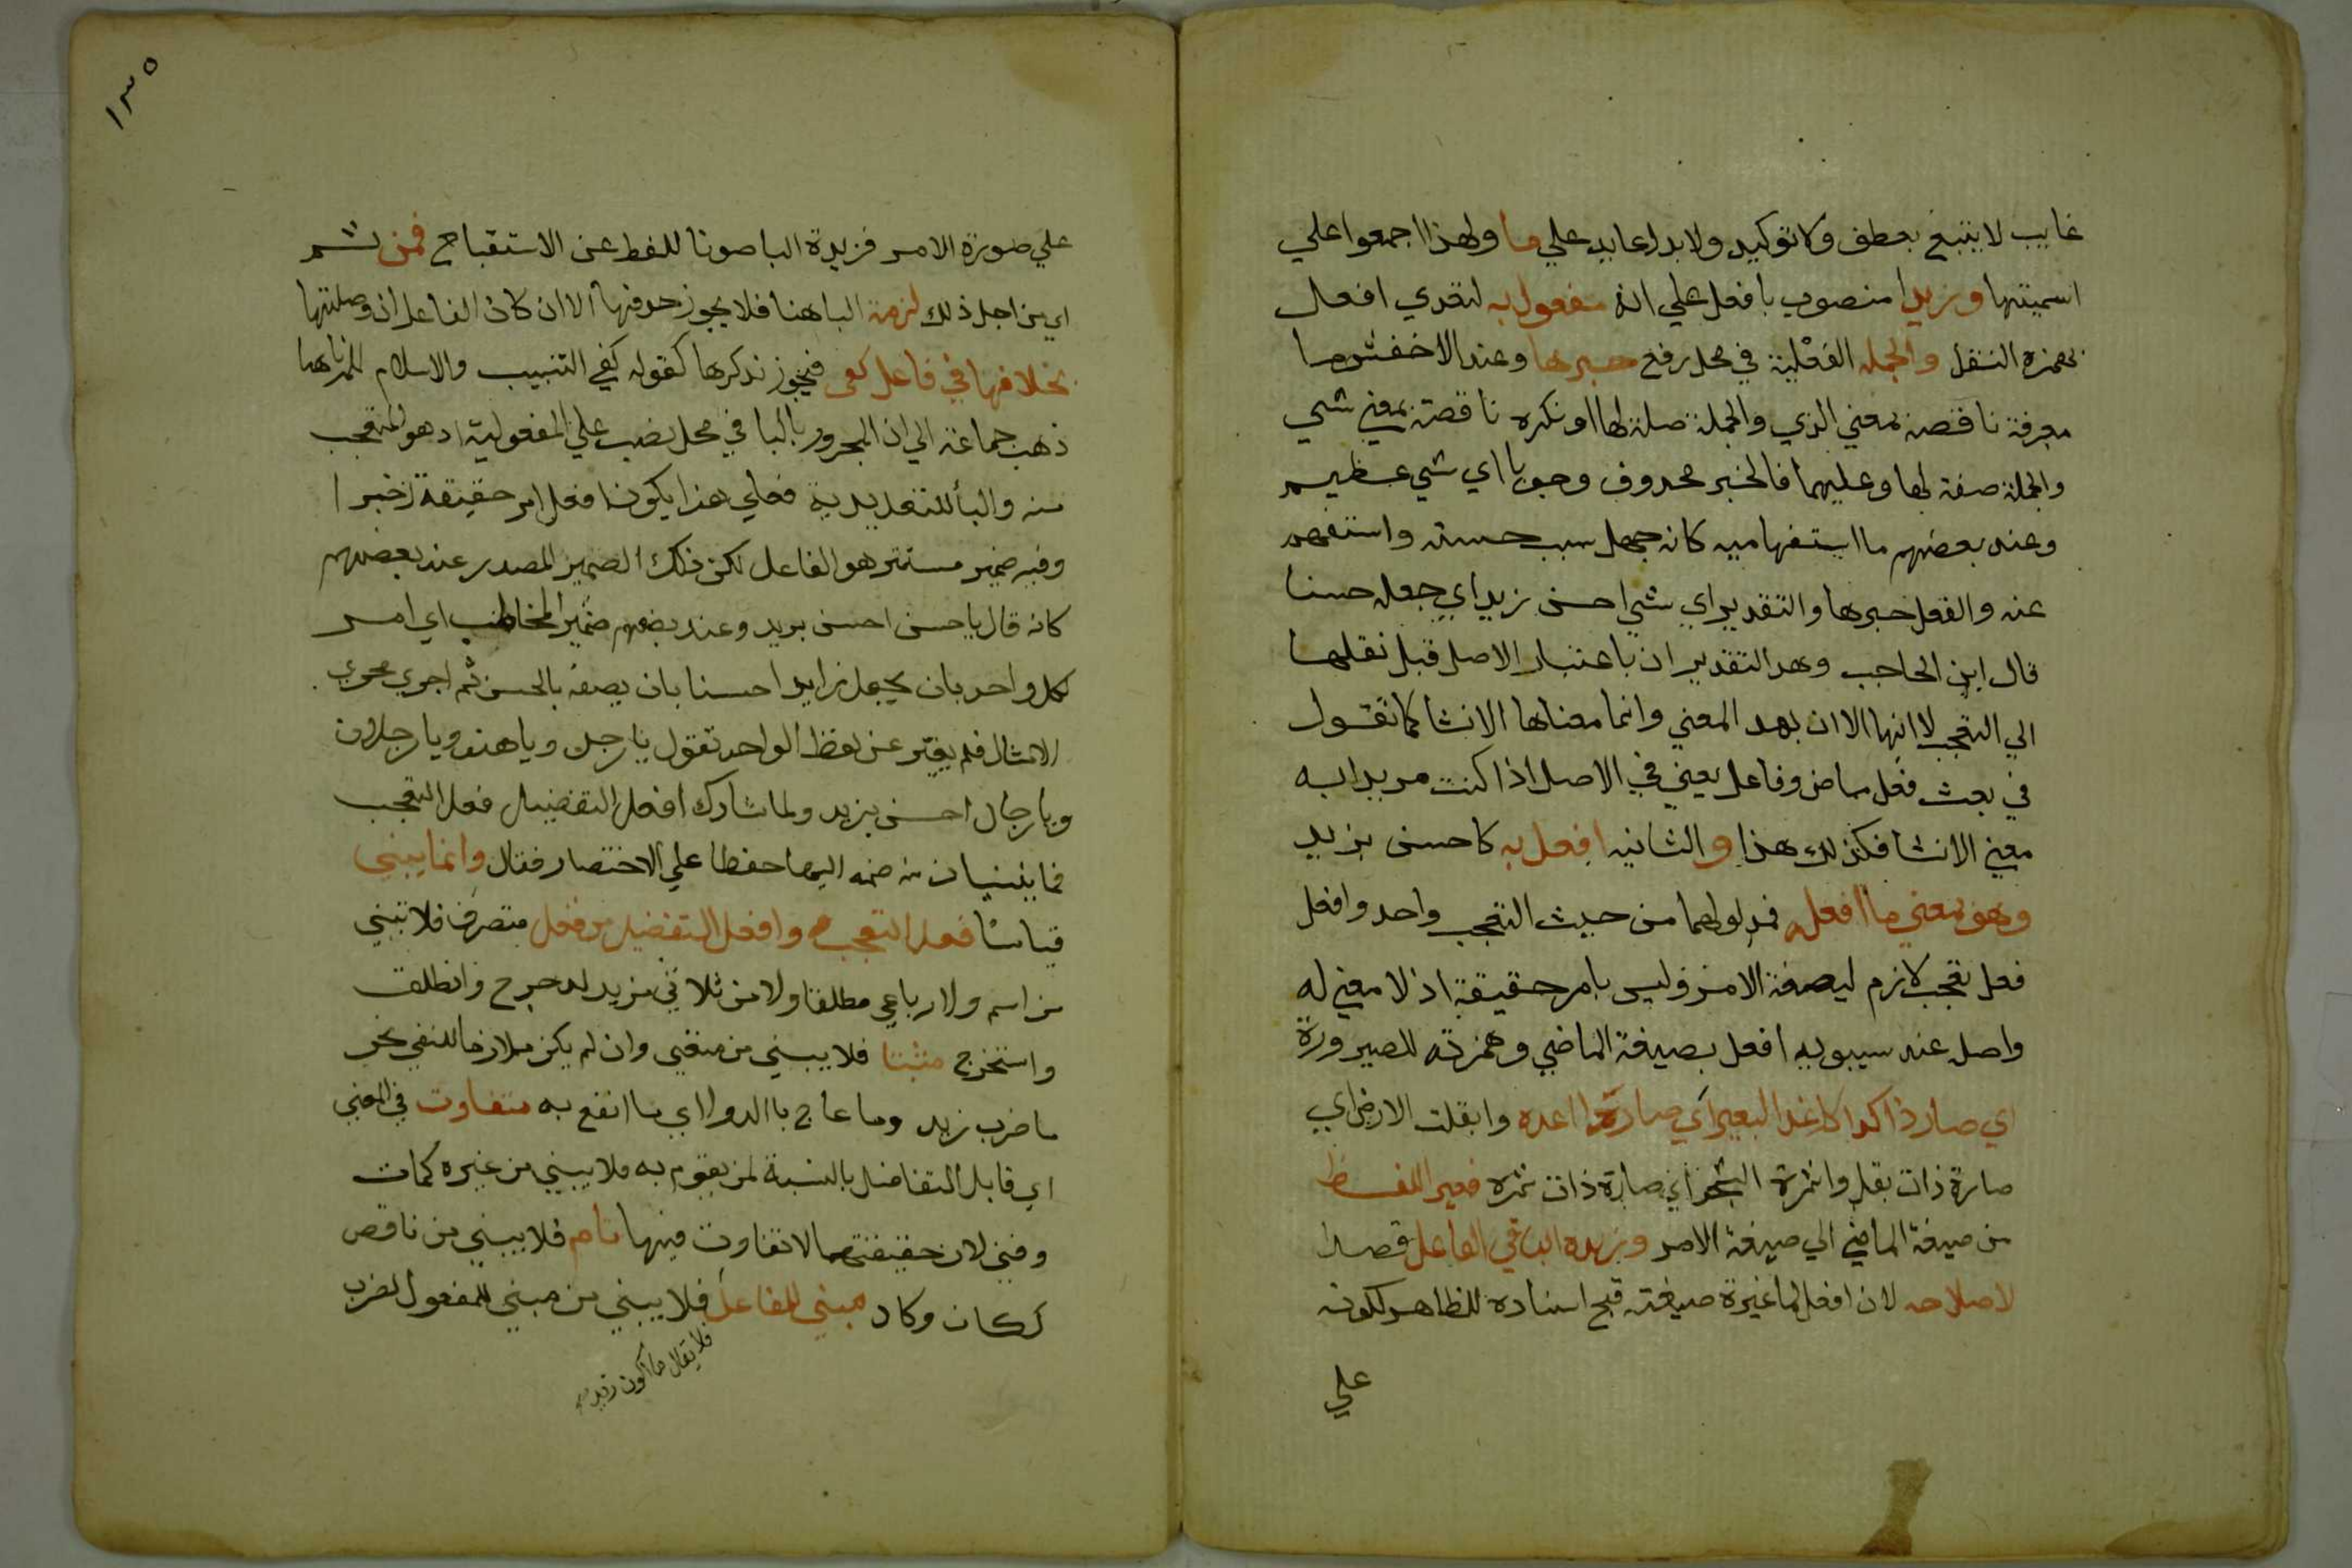 غايب لا يتبع بعطف ولا توكيد ولا بدل عايد علي ما ولهذا اجمعوا علي
اسميتها وزيدا منصوب بافعل علي انه مفعول به لتعدي افعل
بهمزة النقل والجملة الفعلية في محل رفع خبرها وعند الاخفش ما
معرفة ناقصة بمعني الذي والجملة صلة لها او نكره ناقصة بمعني شي
والجملة صفة لها وعليهما فالخبر محذوف وجوبا اي شي عظيم
وعند بعضهم ما استفهاميه كانه جهل سبب حسنه واستفهم
عنه والفعل خبرها والتقدير اي شي احسن زيد اي جعله حسنا
قال ابن الحاجب وهذ التقدير ان باعتبار الاصل قبل نقلها
الي التعجب لا انها الا ان بهذ المعني وانما معناها الانشا كما تقول
في بعت فعل ماض وفاعل يعني في الاصل اذا كنت مريدا به
معني الانشا فكذلك هذا والثانيه افعل به كاحسن بزيد
وهو بمعني ما افعله فمدلولهما من حيث التعجب واحد وافعل
فعل تعجب لازم ليصفة الامر وليس بامر حقيقة اذ لا معني له
واصله عند سيبويه افعل بصيغة الماضي وهمزته للصيرورة
اي صار ذا كذا كاغد البعير اي صار ذا غده وابقلت الارض اي
صارة ذات بقل واثمرة الشجر اي صارة ذات ثمره فغير اللفظ
من صيغة الماضي الي صيغة الامر وزيده البا في الفاعل قصدا
لاصلاحه لان افعل لما غيرة صيغته قبح اسناده للظاهر لكونه
علي
١٣٥
علي صورة الامر فزيدة البا صونا للفط عن الاستقباح فمن ثم
اي من اجل ذلك لزمة البا هنا فلا يجوز حذفها الا ان كان الفاعل ان وصلتها
بخلافها في فاعل كفي فيجوز تركها كقوله كفي الشيب والاسلام للمرناهيا
ذهب جماعة الي ان المجرور بالبا في محل نصب علي المفعولية اذ هو المتعجب
منه والبأ للتعديدية فعلي هذا يكون افعل امر حقيقة لا خبرا
وفيه ضمير مستتر هو الفاعل لكن ذلك الضمير للمصدر عند بعضهم
كانه قال يا حسن احسن بزيد وعند بعضهم ضمير المخاطب اي امر
لكل واحد بان يجعل زايد احسنا بان يصفه بالحسن ثم اجري مجري
الامثال فلم يغير عن لفظ الواحد تقول يا رجل ويا هند ويا رجلان
ويا رجال احسن بزيد ولما شارك افعل التفضيل فعل التعجب
فما يبنيان منه ضمه اليهما حفظا علي الاختصار فقال وانما يبني
قياسا فعل التعجب وافعل التفضيل من فعل متصرف فلا تبني
من اسم ولا رباعي مطلقا ولا من ثلاثي مزيد لدحرج وانطلق
واستخرج مثبتا فلا يبني من منفي وان لم يكن ملازما للنفي نحو
ما ضرب زيد وما عاج بالدوا اي ما انفع به متفاوت في المعني
اي قابل التفاضل بالنسبة لمن يقوم به فلا يبني من غيره كمات
وفني لان حقيقتهما لا تفاوت فيها تام فلا يبني من ناقص
لكان وكاد مبني للفاعل فلا يبني من مبني للمفعول لضرب
فلا يقال ما اكون زيد